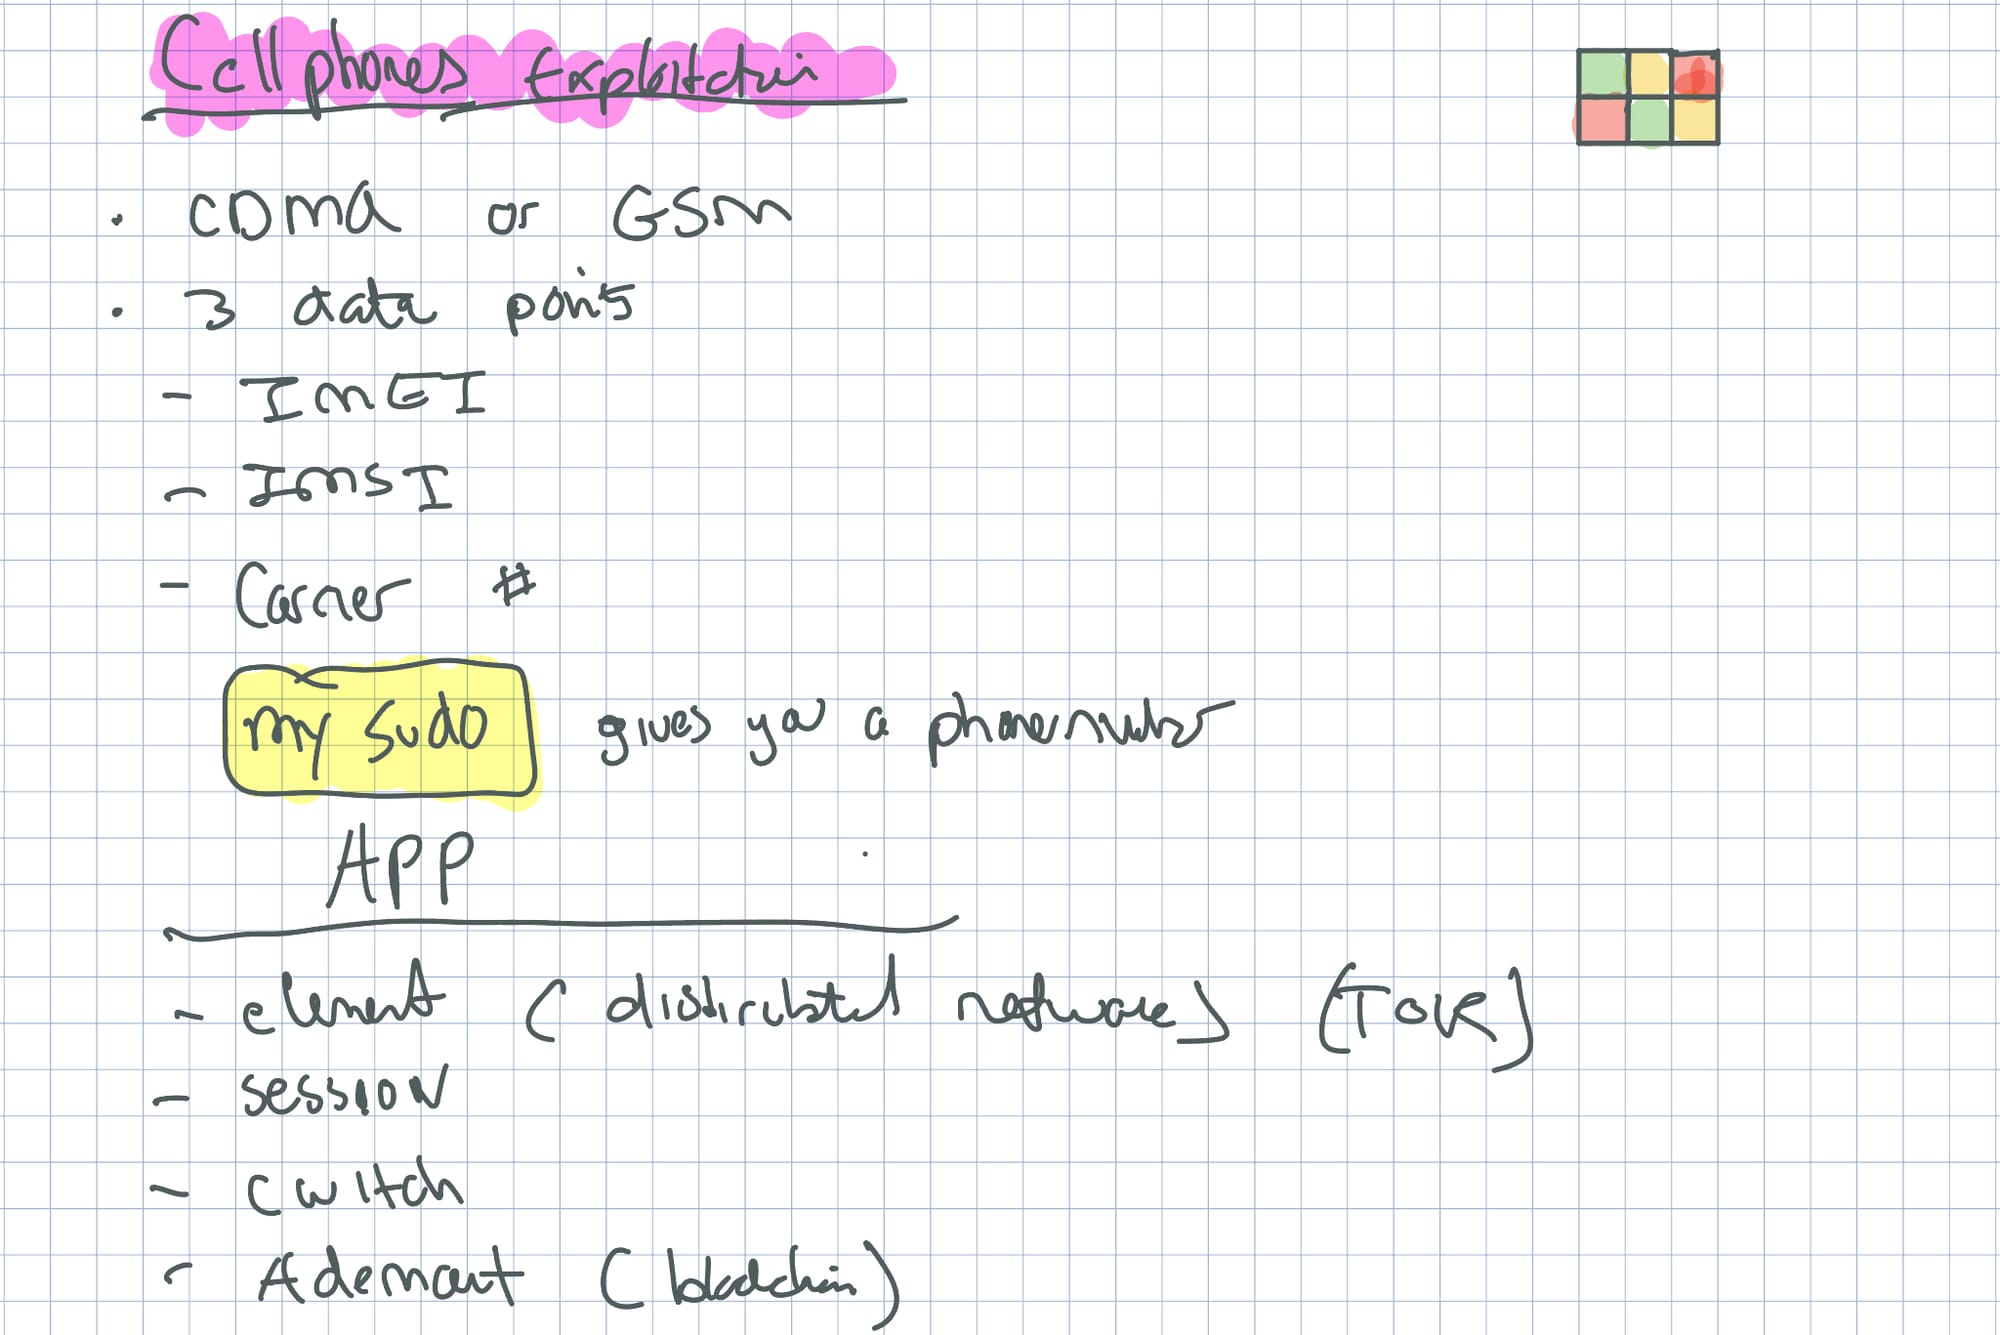 Cellphones Exploitation
• CDMA or GSM
• 3 data points
- IMEI
- IMSI
- Carrier #
my Sudo gives you a phone number
APP
- element (distributed network) (TOR)
- session
- cwitch
- Ademant (blockchain)